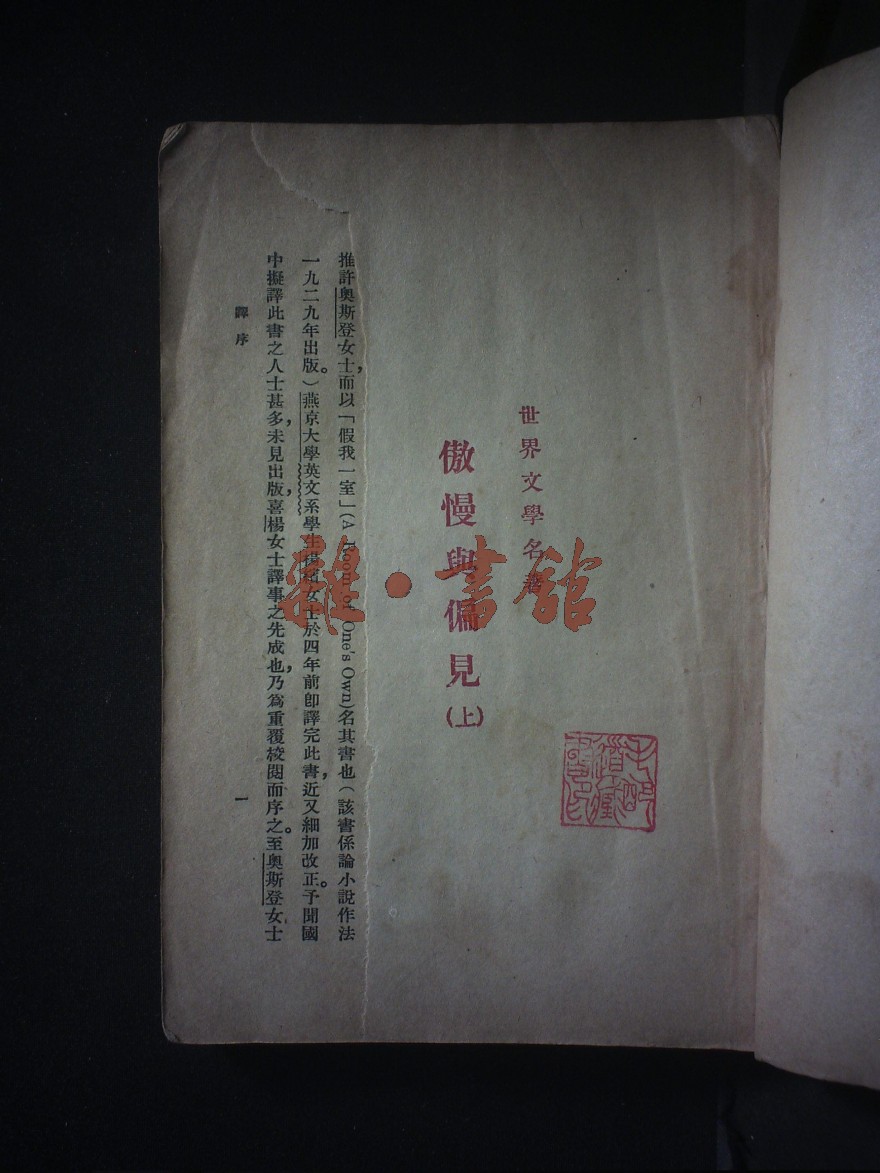 世界文學名著
傲慢與偏見
(上)
推許奧斯登女士，而以「假我一室」(A Room of One's Own)名其書也（該書係論小說作法
一九二九年出版。）燕京大學英文系學生楊繽女士於四年前卽譯完此書，近又細加改正。予聞國
中擬譯此書之人士甚多，未見出版，喜楊女士譯事之先成也，乃爲重覆校閱而序之。至奧斯登女士
譯序
一
雜·書館